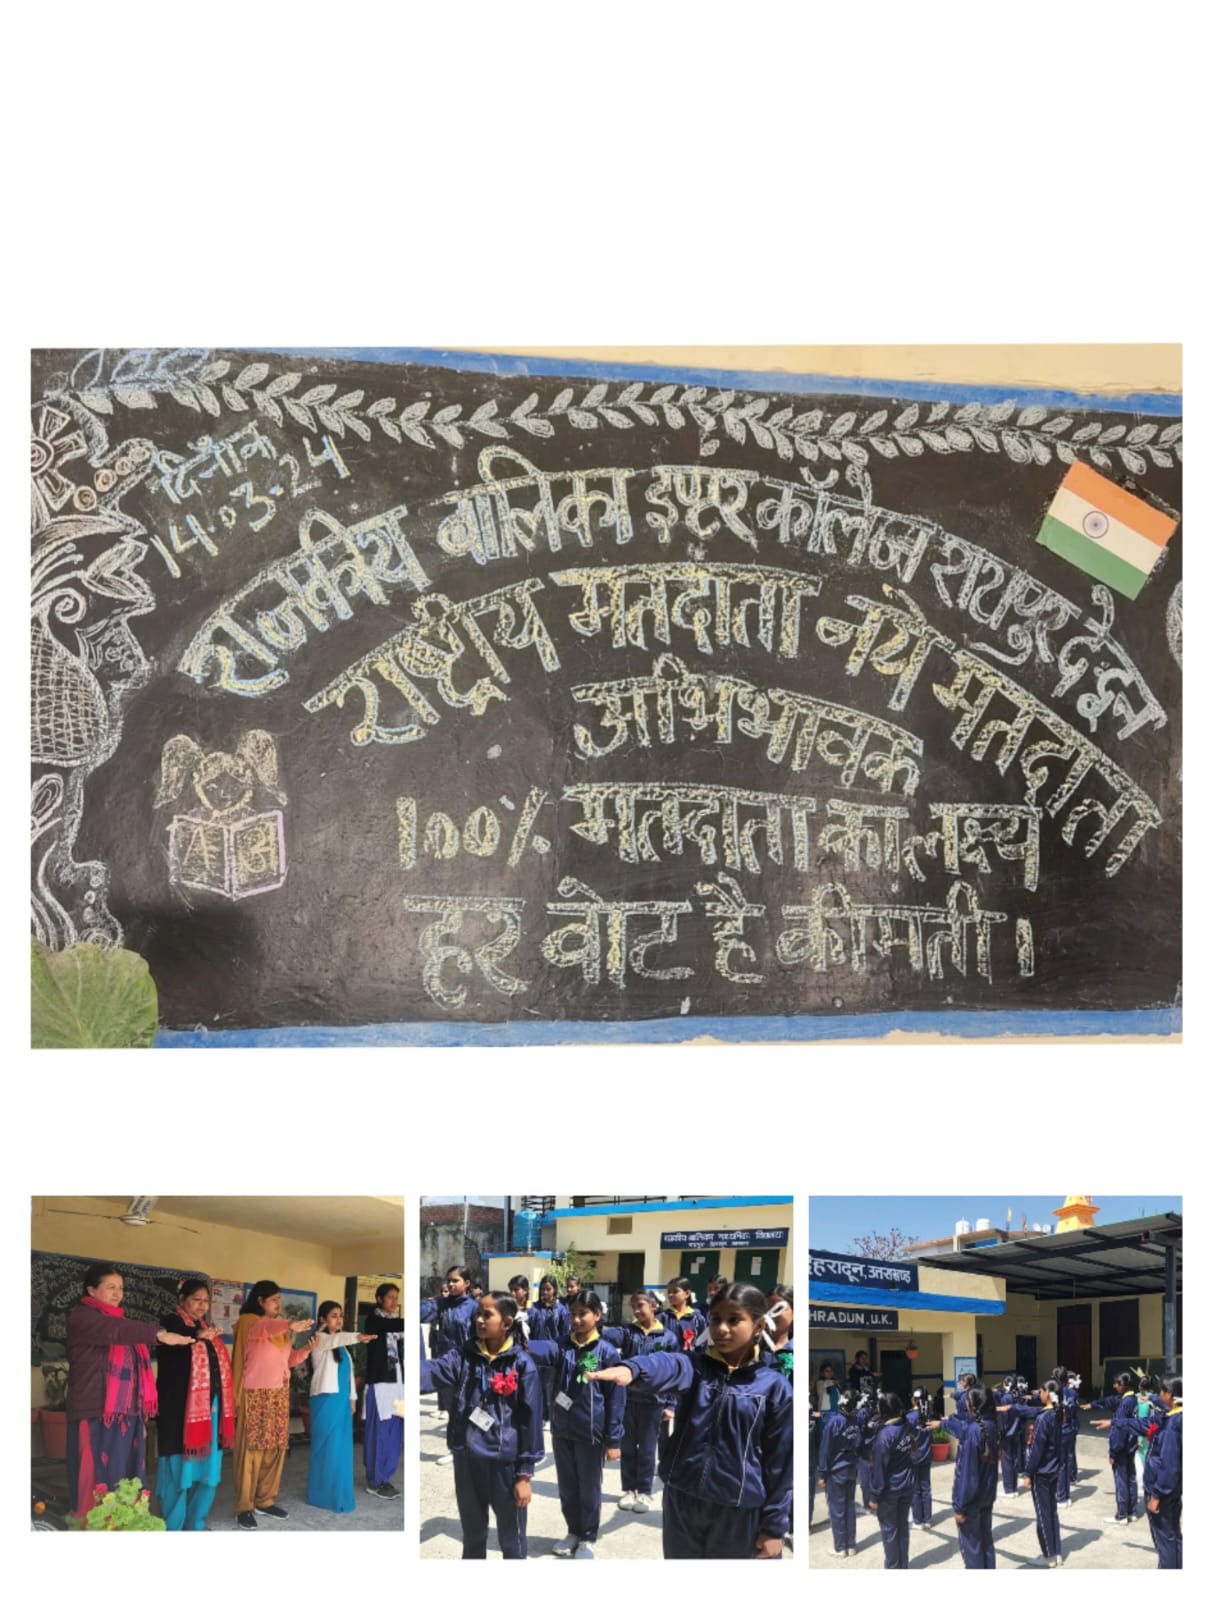 दिनाँक
14.3.24
राजकीय बालिका इण्टर कॉलेज रायपुर दे०दून
राष्ट्रीय मतदाता नये मतदाता
अभिभावक
100% मतदाता का लक्ष्य
हर वोट है कीमती।
बालिका माध्यमिक विद्यालय
देहरादून, उत्तराखण्ड
HRADUN, U.K.